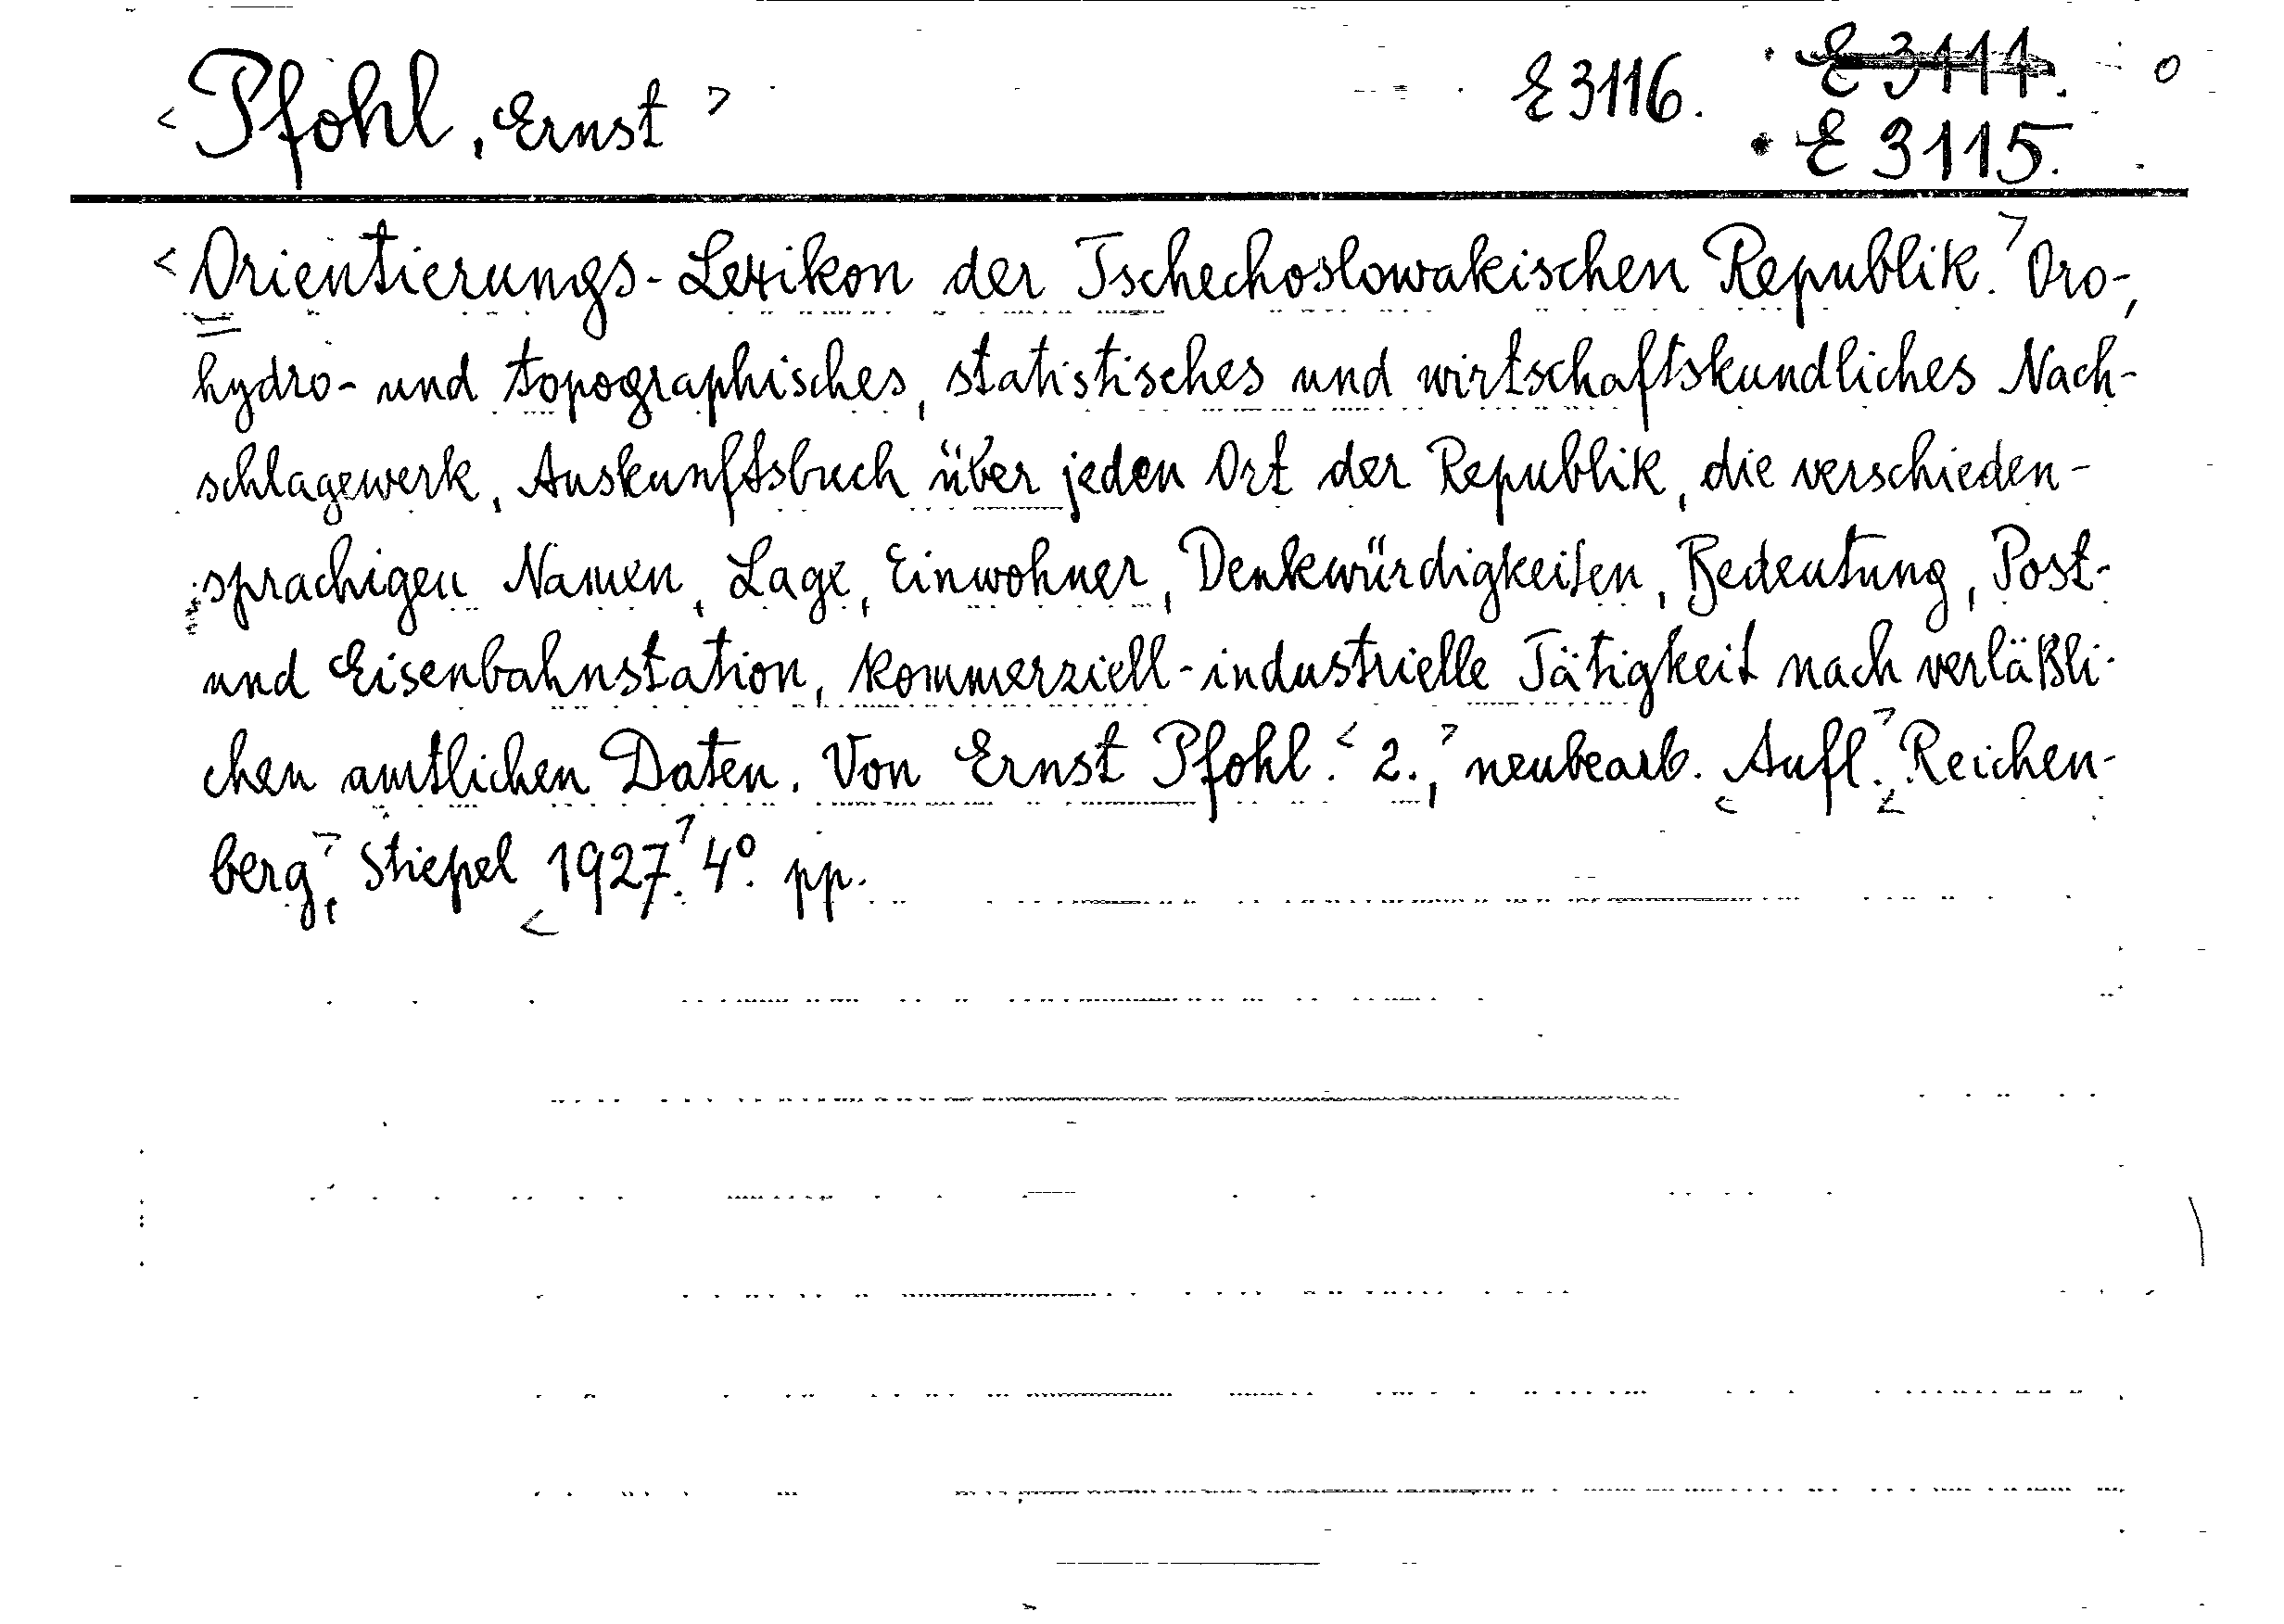 <Pfohl, Ernst> E 3116. E 3114. o
E 3115.
<Orientierungs-Lexikon der Tschechoslowakischen Republik.> Oro-,
hydro- und topographisches, statistisches und wirtschaftskundliches Nach-
schlagewerk, Auskunftsbuch über jeden Ort der Republik, die verschieden-
sprachigen Namen, Lage, Einwohner, Denkwürdigkeiten, Bedeutung, Post-
und Eisenbahnstation, kommerziell-industrielle Tätigkeit nach verläßli-
chen amtlichen Daten. Von Ernst Pfohl. <2.,> neubearb. <Aufl.> <Reichen-
berg>, Stiepel <1927.> 4º. pp.